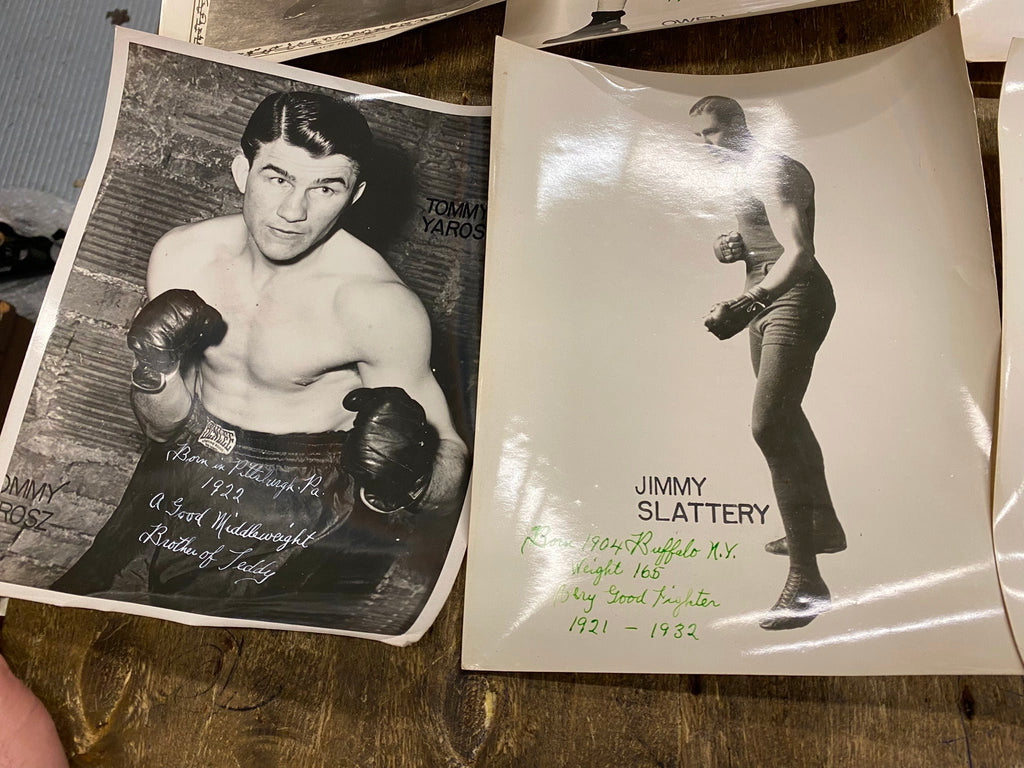 OWEN
TOMMY
YAROS
OMMY
ROSZ
Born in Pittsburgh. Pa.
1922
A Good Middleweight
Brother of Teddy
JIMMY
SLATTERY
Born 1904 Buffalo N.Y.
Weight 165
Very Good Fighter
1921 - 1932